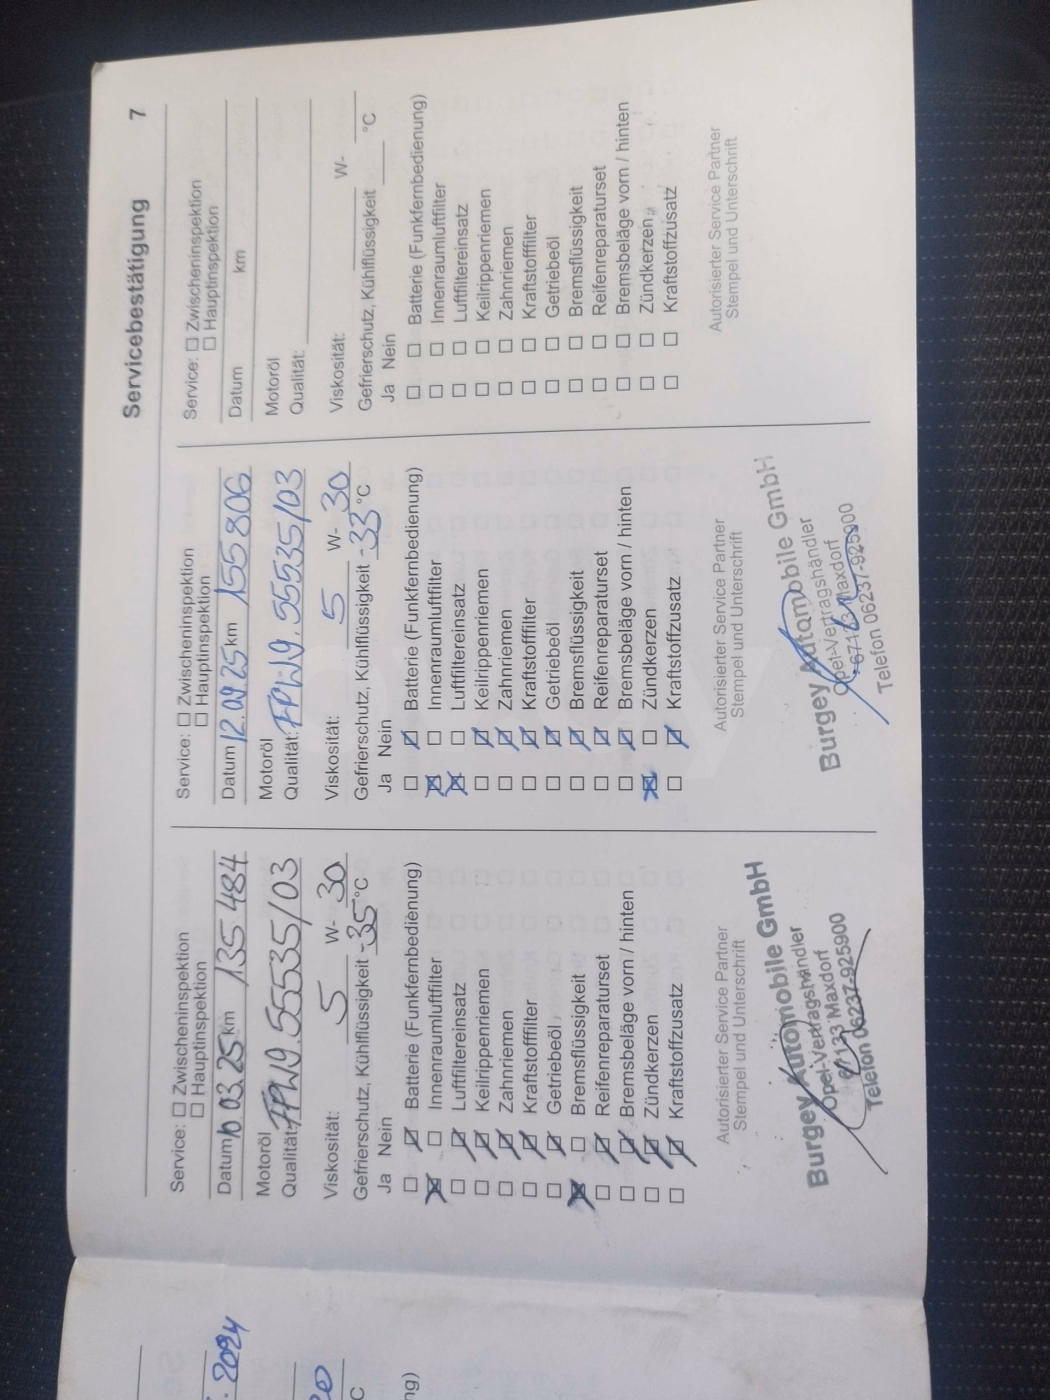 Servicebestätigung 7
Service: ☐ Zwischeninspektion
☐ Hauptinspektion
Datum 10.03.25 km 135.484
Motoröl
Qualität: FPW9.55535/03
Viskosität: 5 W- 30
Gefrierschutz, Kühlflüssigkeit -35 °C
Ja Nein
☐ ☒ Batterie (Funkfernbedienung)
☒ ☐ Innenraumluftfilter
☐ ☒ Luftfiltereinsatz
☐ ☒ Keilrippenriemen
☐ ☒ Zahnriemen
☐ ☒ Kraftstofffilter
☐ ☒ Getriebeöl
☒ ☐ Bremsflüssigkeit
☐ ☒ Reifenreparaturset
☐ ☒ Bremsbeläge vorn / hinten
☐ ☒ Zündkerzen
☐ ☒ Kraftstoffzusatz
Autorisierter Service Partner
Stempel und Unterschrift
Burgey Automobile GmbH
Opel-Vertragshändler
67133 Maxdorf
Telefon 06237-925900
Service: ☐ Zwischeninspektion
☐ Hauptinspektion
Datum 12.09.25 km 155806
Motoröl
Qualität: FPW9.55535/03
Viskosität: 5 W- 30
Gefrierschutz, Kühlflüssigkeit -33 °C
Ja Nein
☐ ☒ Batterie (Funkfernbedienung)
☒ ☐ Innenraumluftfilter
☒ ☐ Luftfiltereinsatz
☐ ☒ Keilrippenriemen
☐ ☒ Zahnriemen
☐ ☒ Kraftstofffilter
☐ ☒ Getriebeöl
☐ ☒ Bremsflüssigkeit
☐ ☒ Reifenreparaturset
☐ ☒ Bremsbeläge vorn / hinten
☒ ☐ Zündkerzen
☐ ☒ Kraftstoffzusatz
Autorisierter Service Partner
Stempel und Unterschrift
Burgey Automobile GmbH
Opel-Vertragshändler
67133 Maxdorf
Telefon 06237-925900
Service: ☐ Zwischeninspektion
☐ Hauptinspektion
Datum km
Motoröl
Qualität:
Viskosität: W-
Gefrierschutz, Kühlflüssigkeit °C
Ja Nein
☐ ☐ Batterie (Funkfernbedienung)
☐ ☐ Innenraumluftfilter
☐ ☐ Luftfiltereinsatz
☐ ☐ Keilrippenriemen
☐ ☐ Zahnriemen
☐ ☐ Kraftstofffilter
☐ ☐ Getriebeöl
☐ ☐ Bremsflüssigkeit
☐ ☐ Reifenreparaturset
☐ ☐ Bremsbeläge vorn / hinten
☐ ☐ Zündkerzen
☐ ☐ Kraftstoffzusatz
Autorisierter Service Partner
Stempel und Unterschrift
2024
C
ng)